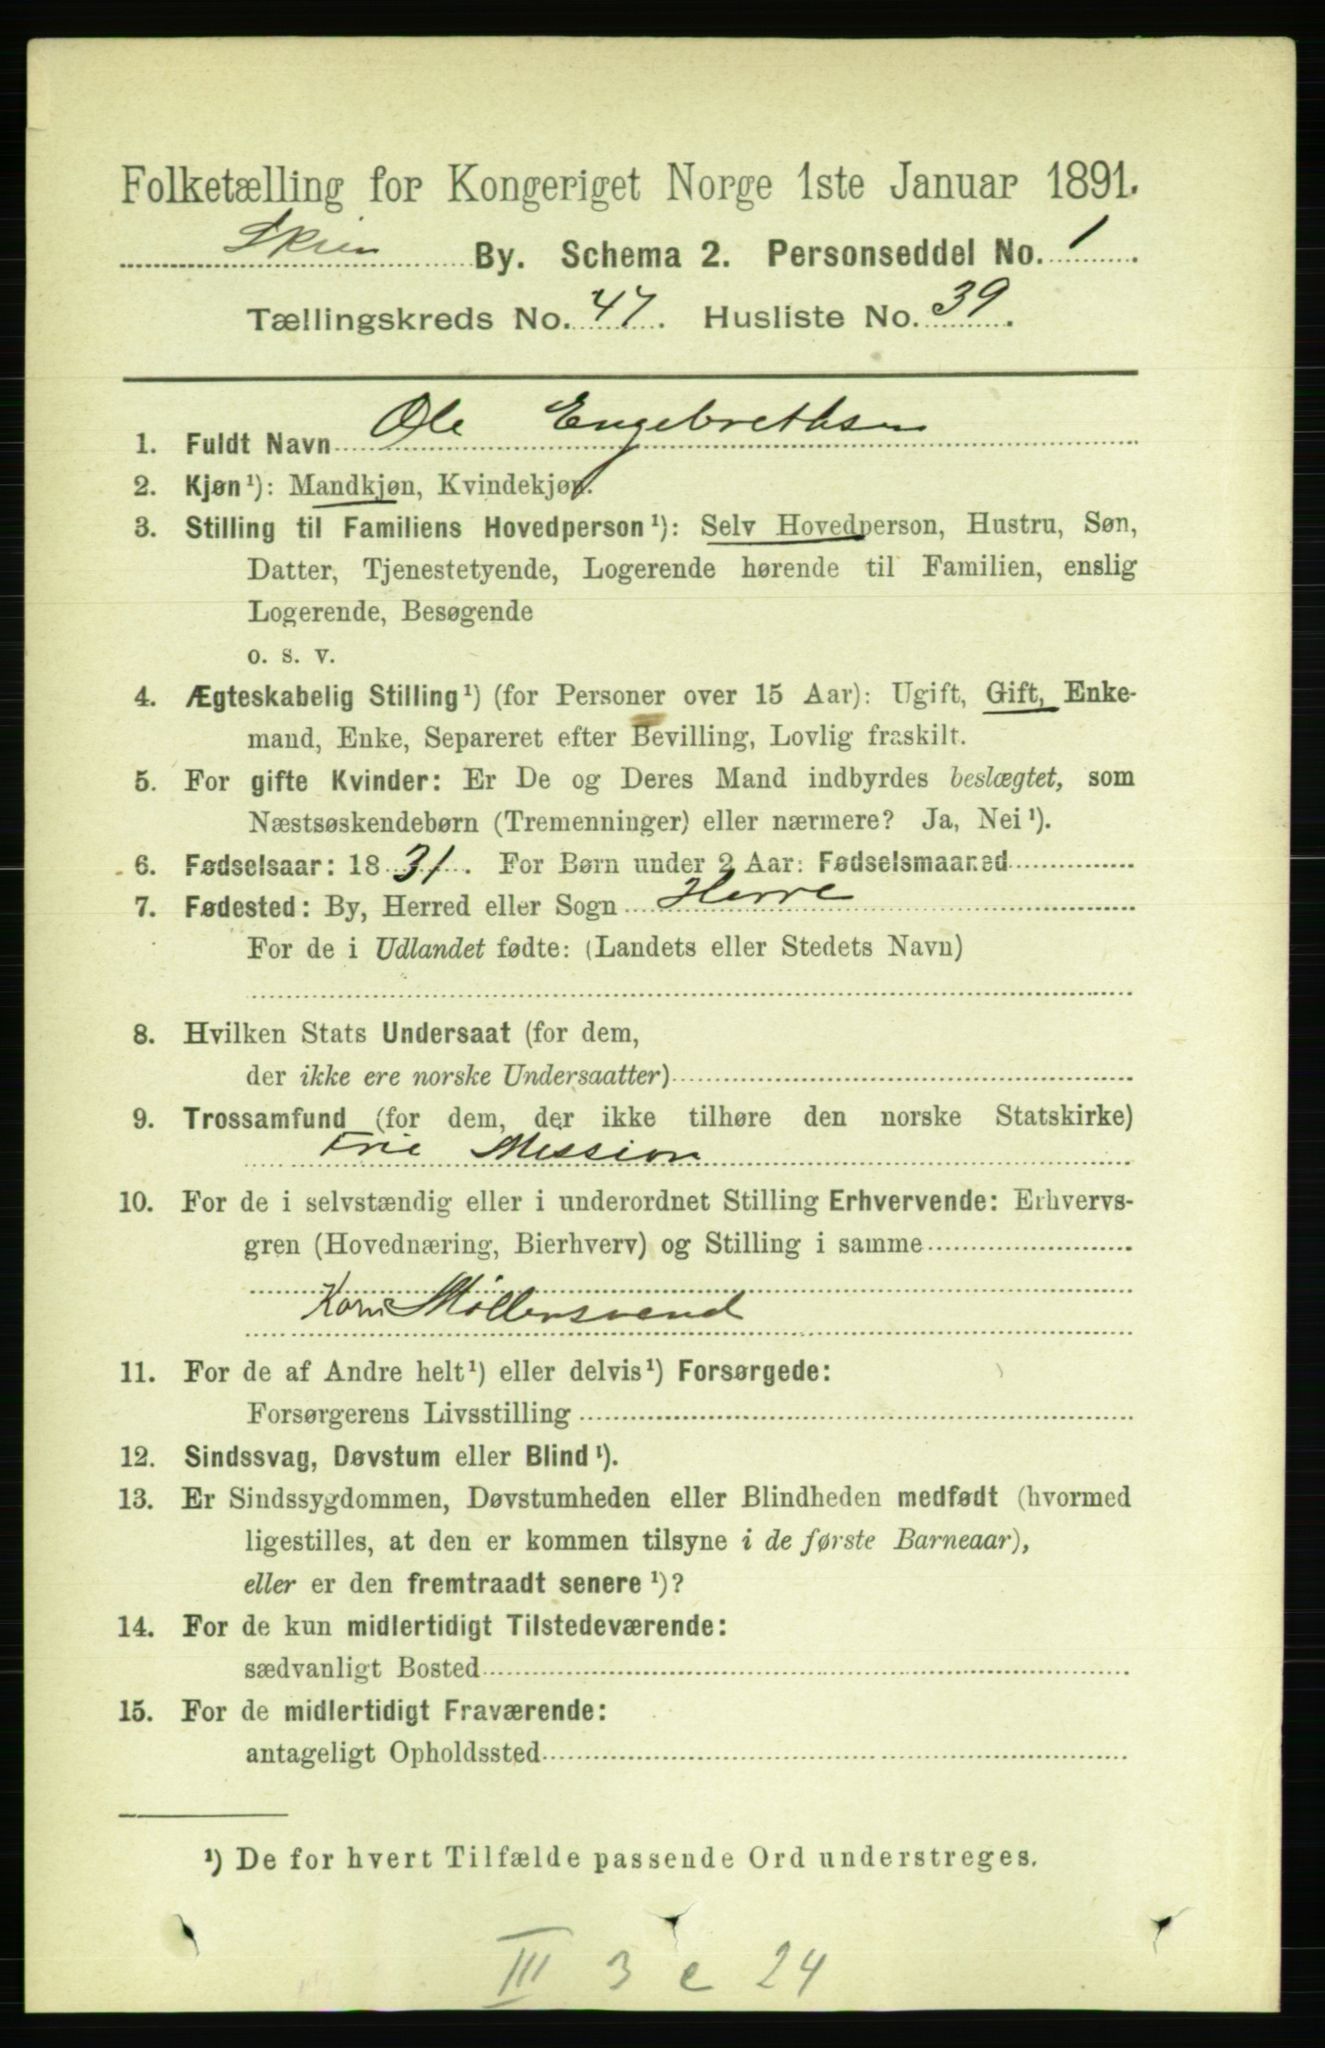 Folketælling for Kongeriget Norge 1ste Januar 1891.
Skien By. Schema 2. Personseddel No. 1
Tællingskreds No. 47. Husliste No. 39.
1. Fuldt Navn Ole Engebrethsen
2. Kjøn¹): Mandkjøn, Kvindekjøn.
3. Stilling til Familiens Hovedperson¹): Selv Hovedperson, Hustru, Søn,
Datter, Tjenestetyende, Logerende hørende til Familien, enslig
Logerende, Besøgende
o. s. v.
4. Ægteskabelig Stilling¹) (for Personer over 15 Aar): Ugift, Gift, Enke-
mand, Enke, Separeret efter Bevilling, Lovlig fraskilt.
5. For gifte Kvinder: Er De og Deres Mand indbyrdes beslægtet, som
Næstsøskendebørn (Tremenninger) eller nærmere? Ja, Nei¹).
6. Fødselsaar: 1831. For Børn under 2 Aar: Fødselsmaaned
7. Fødested: By, Herred eller Sogn Herre
For de i Udlandet fødte: (Landets eller Stedets Navn)
8. Hvilken Stats Undersaat (for dem,
der ikke ere norske Undersaatter)
9. Trossamfund (for dem, der ikke tilhøre den norske Statskirke)
Frie Mission
10. For de i selvstændig eller i underordnet Stilling Erhvervende: Erhvervs-
gren (Hovednæring, Bierhverv) og Stilling i samme
Korn Møllersvend
11. For de af Andre helt¹) eller delvis¹) Forsørgede:
Forsørgerens Livsstilling
12. Sindssvag, Døvstum eller Blind¹).
13. Er Sindssygdommen, Døvstumheden eller Blindheden medfødt (hvormed
ligestilles, at den er kommen tilsyne i de første Barneaar),
eller er den fremtraadt senere¹)?
14. For de kun midlertidigt Tilstedeværende:
sædvanligt Bosted
15. For de midlertidigt Fraværende:
antageligt Opholdssted
¹) De for hvert Tilfælde passende Ord understreges.
III 3 e 24